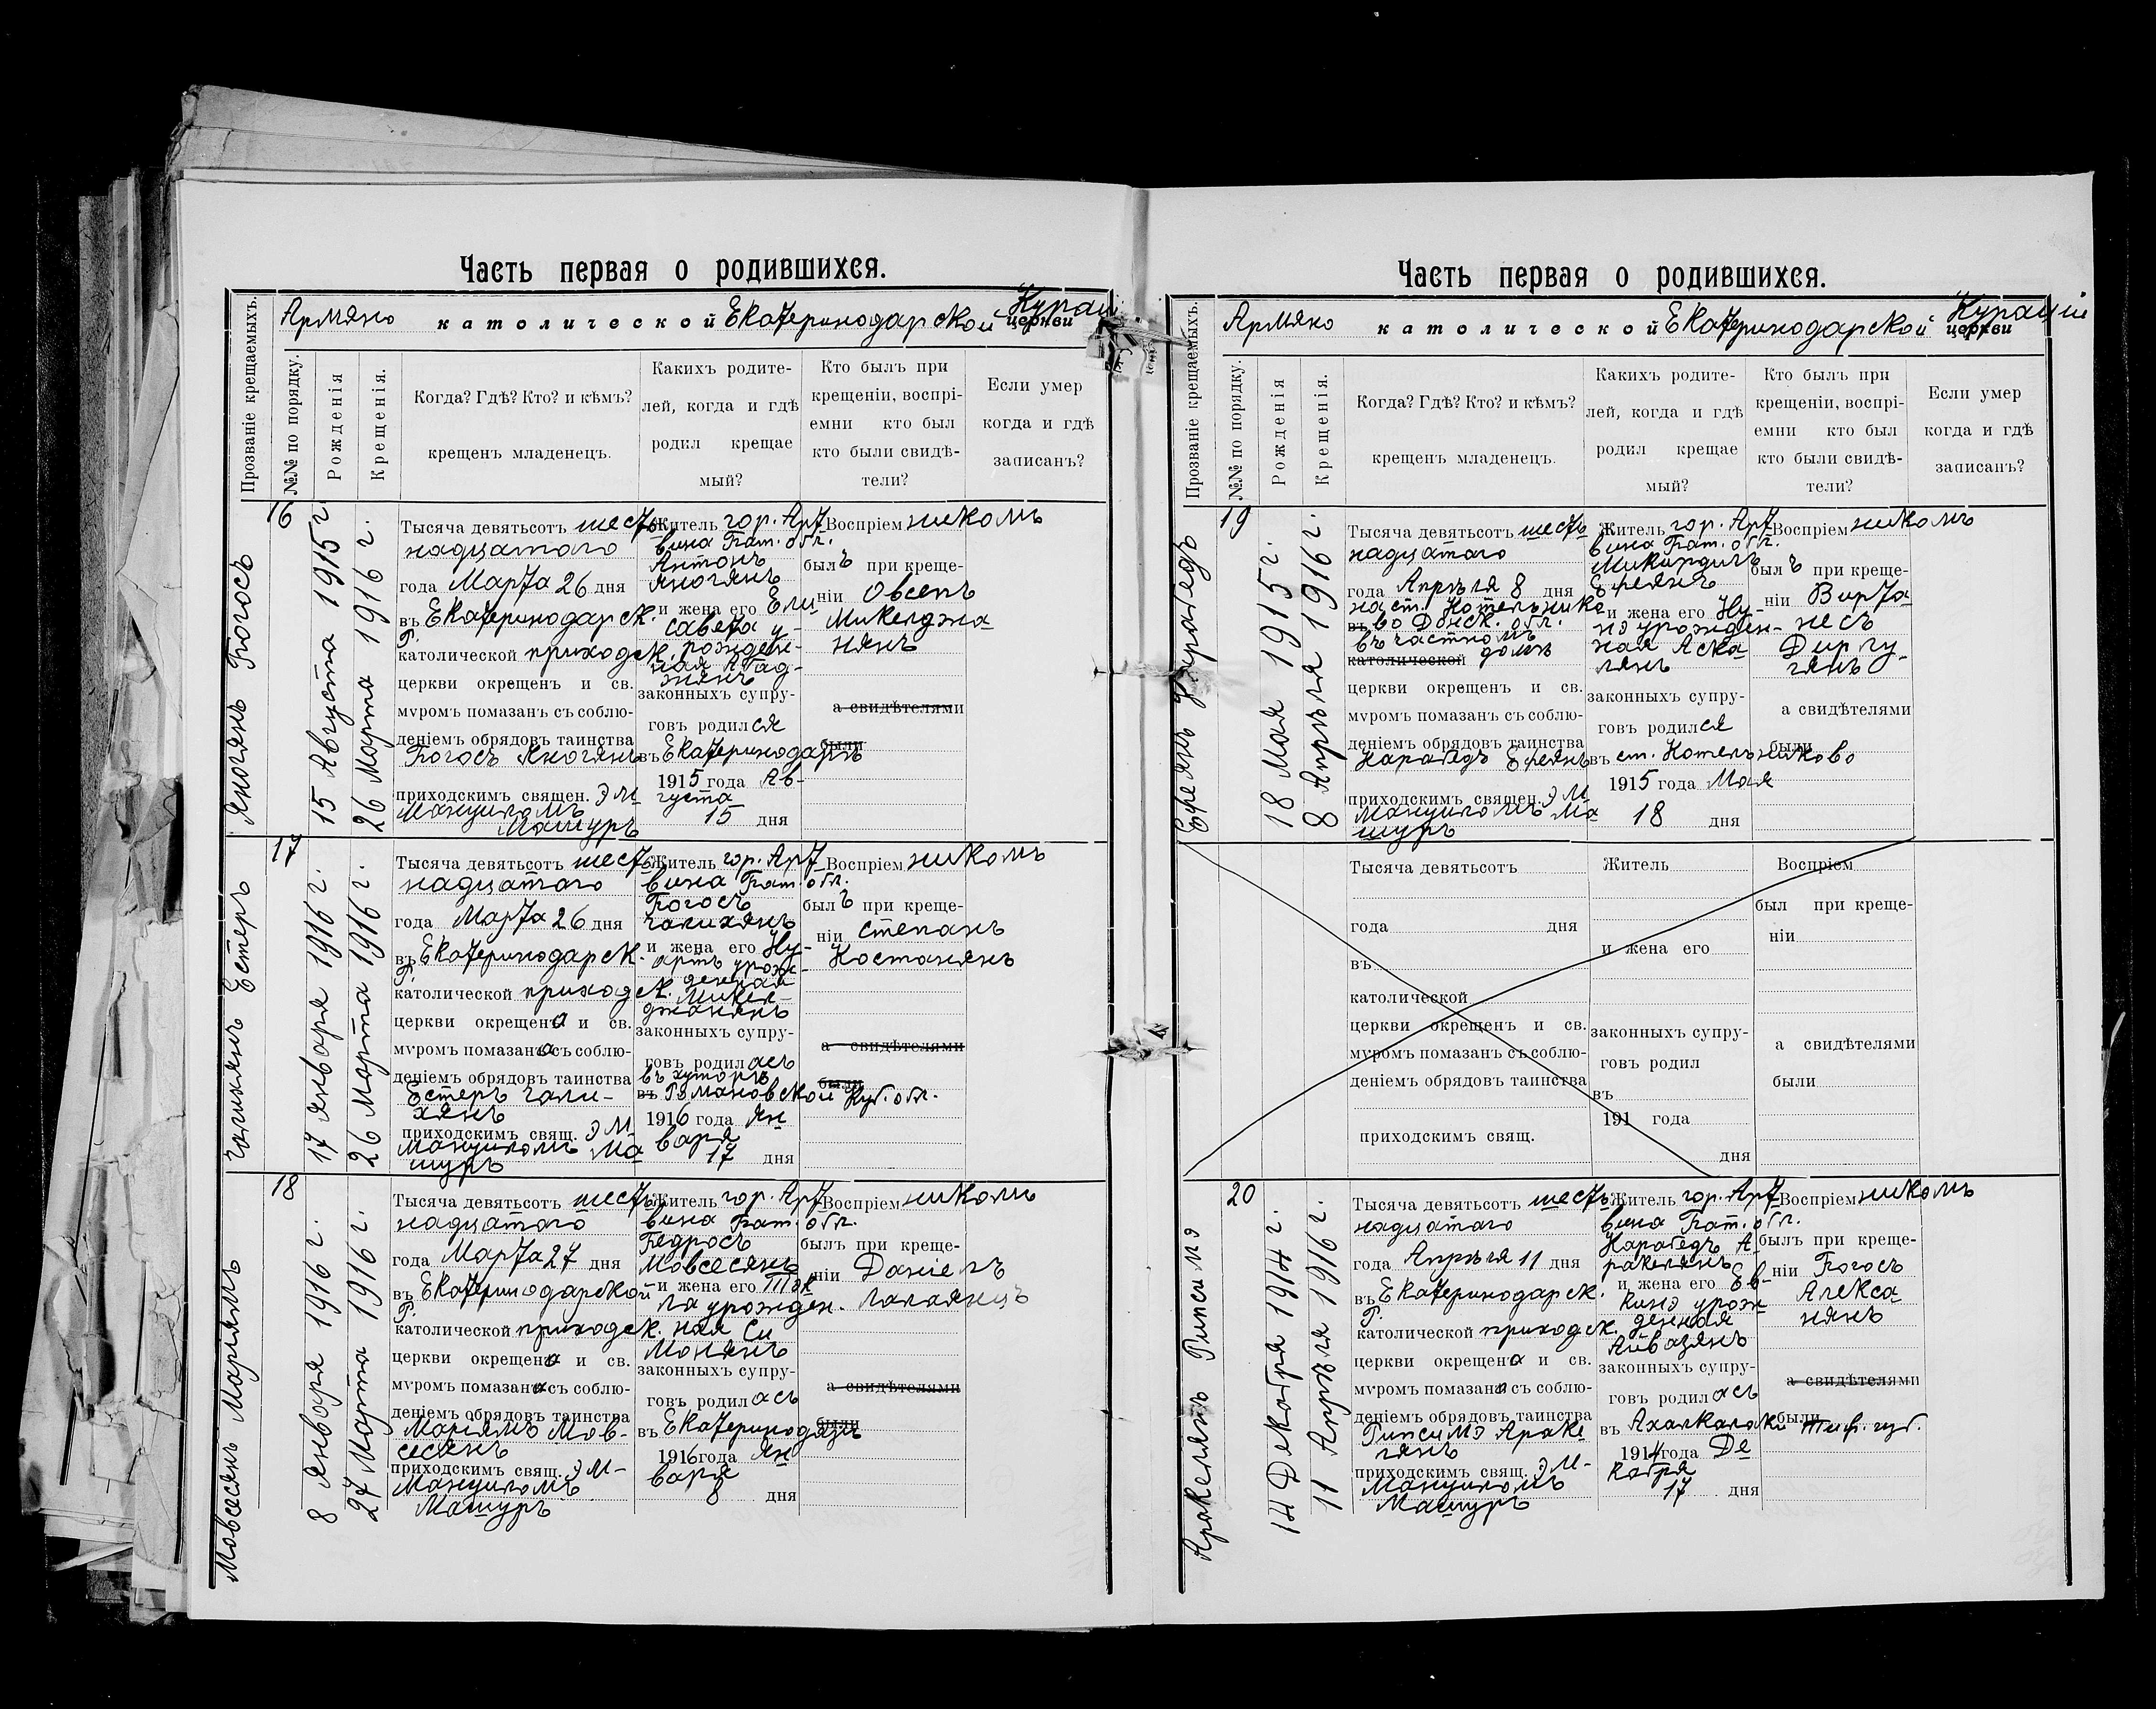 Часть первая о родившихся.
Армяно католической Екатеринодарской церкви
Прозваніе крещаемыхъ.
№№ по порядку.
Рожденія
Крещенія.
Когда? Гдѣ? Кто? и кѣмъ?
крещенъ младенецъ.
Какихъ родите-
лей, когда и гдѣ
родил крещае
мый?
Кто былъ при
крещеніи, воспрі-
емни кто был
кто были свидѣ-
тели?
Если умер
когда и гдѣ
записанъ?
Яногянъ Погосъ
16
15 Августа 1915 г.
26 Марта 1916 г.
Тысяча девятьсотъ шесть
надцатаго
года Марта 26 дня
въ Екатеринодарск.
Р.
католической приходск.
церкви окрещенъ и св.
мѵромъ помазанъ съ соблю-
деніемъ обрядовъ таинства
Погосъ Яногянъ
приходскимъ священ. Эм
мануиломъ
Машуръ
Житель гор. Арт
вина Бат. обл.
Антонъ
Яногянъ
и жена его Ели
савета у-
рожден-
ная
законныхъ супру-
говъ родился
въ Екатеринодаръ
1915 года Ав-
густа
15 дня
Воспріем никомъ
былъ при креще-
ніи Овсепъ
Микелджа
нянъ
а свидѣтелями
были
Чалихянъ Естеръ
17
17 Января 1916 г.
26 Марта 1916 г.
Тысяча девятьсотъ шесть
надцатаго
года Марта 26 дня
въ Екатеринодарск.
Р.
католической приходск.
церкви окрещена и св.
мѵромъ помазана съ соблю-
деніемъ обрядовъ таинства
Естеръ Чали-
хянъ
приходскимъ свящ. Эм
мануиломъ Ма
шуръ
Житель гор. Арт
вина Бат. обл.
Погосъ
Чалихянъ
и жена его Ну-
артъ урож-
денная
Микел-
джанянъ
законныхъ супру-
говъ родилась
въ хуторѣ
въ Романовской Куб. обл.
1916 года Ян
варя
17 дня
Воспріем никомъ
былъ при креще-
ніи Степанъ
Костанянъ
а свидѣтелями
были
Мовсесянъ Маріямъ
18
8 Января 1916 г.
27 Марта 1916 г.
Тысяча девятьсотъ шесть
надцатаго
года Марта 27 дня
въ Екатеринодарской
Р.
католической приходск.
церкви окрещена и св.
мѵромъ помазана съ соблю-
деніемъ обрядовъ таинства
Маріямъ Мов-
сесянъ
приходскимъ свящ. Эм-
мануиломъ
Машуръ
Житель гор. Арт
вина Бат. обл.
Педросъ
Мовсесянъ
и жена его
урожден-
ная Си
монянъ
законныхъ супру-
говъ родилась
въ Екатеринодаръ
1916 года Ян
варя
8 дня
Воспріем никомъ
былъ при креще-
ніи Даніелъ
Лалаянцъ
а свидѣтелями
были
Часть первая о родившихся.
Армяно католической Екатеринодарской Кураціи церкви
Прозваніе крещаемыхъ.
№№ по порядку.
Рожденія
Крещенія.
Когда? Гдѣ? Кто? и кѣмъ?
крещенъ младенецъ.
Какихъ родите-
лей, когда и гдѣ
родил крещае
мый?
Кто былъ при
крещеніи, воспрі-
емни кто был
кто были свидѣ-
тели?
Если умер
когда и гдѣ
записанъ?
Ефеянъ Карапедъ
19
18 Мая 1915 г.
8 Апрѣля 1916 г.
Тысяча девятьсотъ шесть
надцатаго
года Апрѣля 8 дня
на ст. Котельнико
въ во Донск. обл.
въ частномъ
католической домѣ
церкви окрещенъ и св.
мѵромъ помазанъ съ соблю-
деніемъ обрядовъ таинства
Карапедъ Ефеянъ
приходскимъ священ. Эм
мануиломъ Ма
шуръ
Житель гор. Арт
вина Бат. обл.
Микирдичъ
Ефеянъ
и жена его Ну-
нэ урожден-
ная Аска
лянъ
законныхъ супру-
говъ родился
въ ст. Котельниково
1915 года Мая
18 дня
Воспріем никомъ
былъ при креще-
ніи Вирта
несъ
Диргу-
гянъ
а свидѣтелями
были
Тысяча девятьсотъ
года дня
въ
католической
церкви окрещенъ и св.
мѵромъ помазанъ съ соблю-
деніемъ обрядовъ таинства
приходскимъ свящ.
Житель
и жена его
законныхъ супру-
говъ родил
въ
191 года
дня
Воспріем
был при креще-
ніи
а свидѣтелями
были
Аракелянъ Рипсимэ
20
14 Декабря 1914 г.
11 Апрѣля 1916 г.
Тысяча девятьсотъ шесть
надцатаго
года Апрѣля 11 дня
въ Екатеринодарск.
Р.
католической приходск.
церкви окрещена и св.
мѵромъ помазана съ соблю-
деніемъ обрядовъ таинства
Рипсимэ Араке
лянъ
приходскимъ свящ. Эм-
мануиломъ
Машуръ
Житель гор. Арт
вина Бат. обл.
Карапедъ А-
ракелянъ
и жена его Ев-
кинэ урож
денная
Айвазянъ
законныхъ супру-
говъ родилась
въ Ахалкалаки Тиф. губ.
1914 года Де
кабря
17 дня
Воспріем никомъ
былъ при креще-
ніи Погосъ
Алекса
нянъ
а свидѣтелями
были